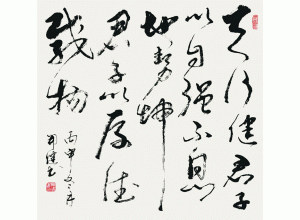 天行健君子
以自强不息
地勢坤
君子以厚德
載物
丙申